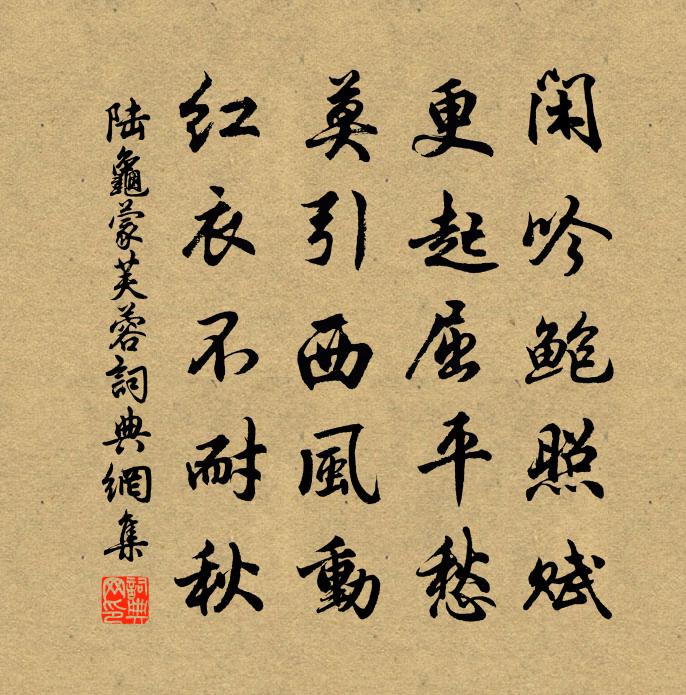 閑吟鮑照賦
更起屈平愁
莫引西風動
紅衣不耐秋
陸龜蒙芙蓉詞典網集
詞典網印